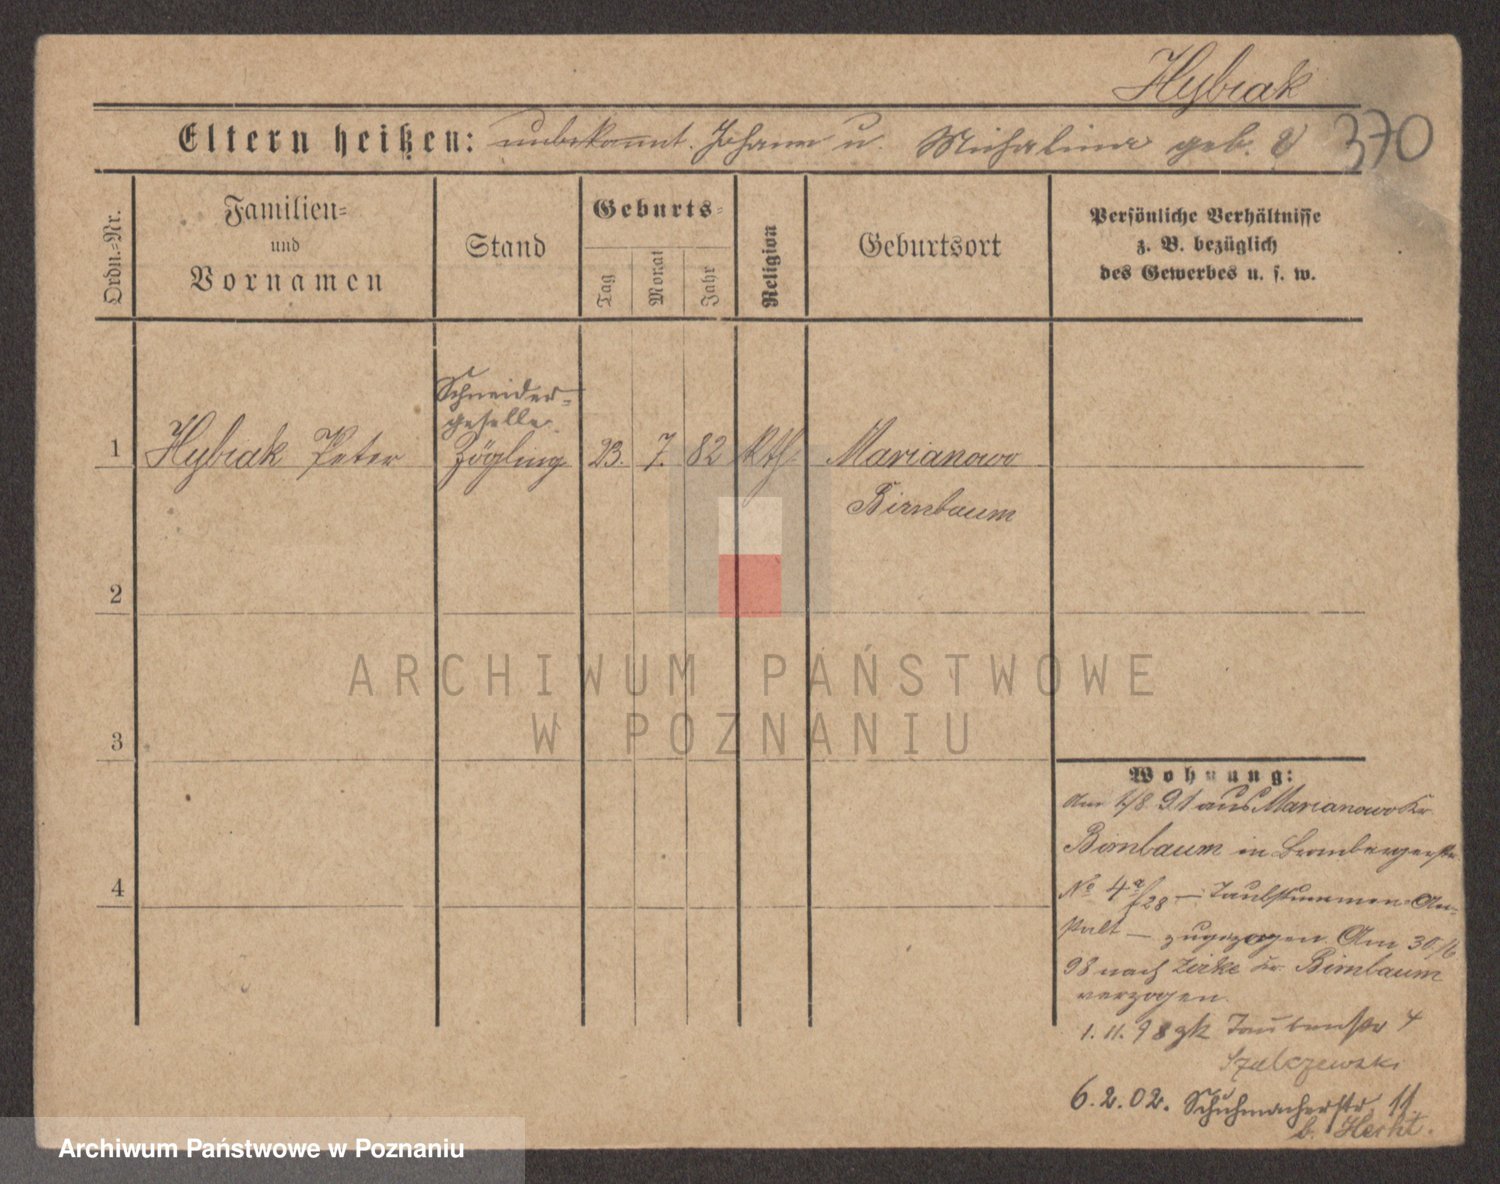 Hybiak
Eltern heißen: unbekannt. Johann u. Michalina geb.
370
Ordn.-Nr.
Familien-
und
Vornamen
Stand
Geburts-
Tag
Monat
Jahr
Religion
Geburtsort
Persönliche Verhältnisse
z. B. bezüglich
des Gewerbes u. s. w.
Schneider-
geselle
1 Hybiak Peter Zögling 23. 7. 82 kth. Marianowo
Birnbaum
2
3
4
Wohnung:
Am 1/8. 91 aus Marianowo Kr.
Birnbaum in Brombergerstr.
No 4 a/28 — Taubstummen-An-
stalt — zugezogen. Am 30./6
98 nach Zirke Kr. Birnbaum
verzogen.
1. 11. 98 zk Taubenstr 4
6. 2. 02. Schuhmacherstr. 11
b. Hecht.
ARCHIWUM PAŃSTWOWE
W POZNANIU
Archiwum Państwowe w Poznaniu